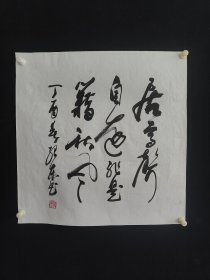 居高声
自远非是
藉秋风
丁酉春张东书